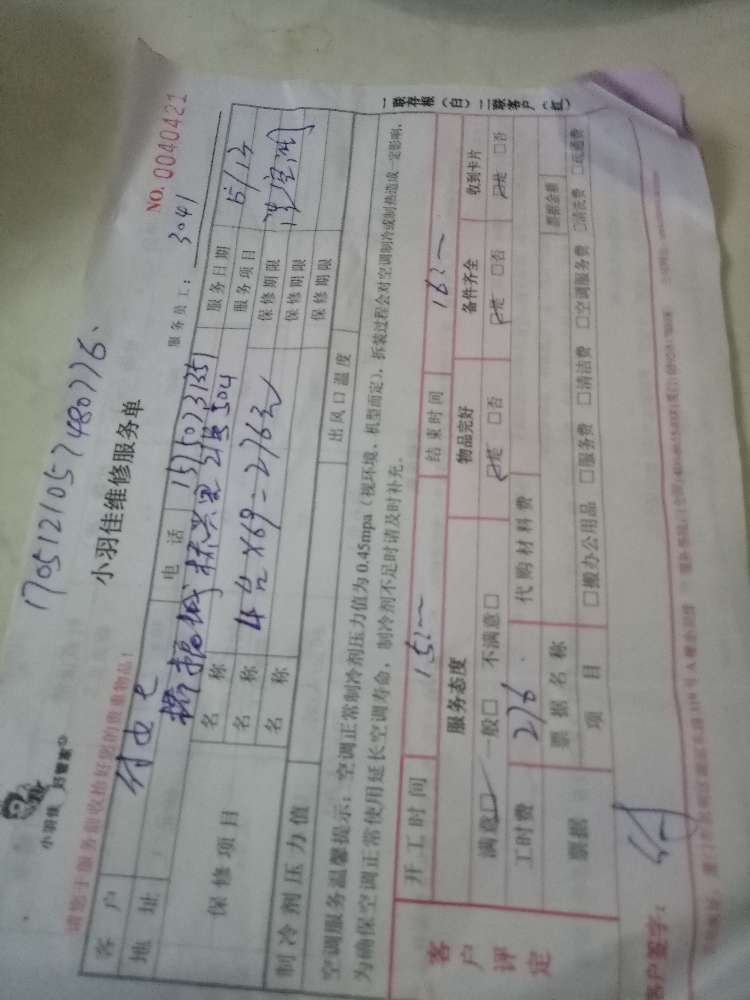 小羽佳 好管家
1705121057480776
小羽佳维修服务单
NO. 0040421
请您于服务前收拾好您的贵重物品!
服务员工: 3041
客户 电话 15750731351 服务日期 5/13
地址 21号504 服务项目 洗空调
保修项目 名称 4台×69=276元 保修期限
名称 保修期限
名称 保修期限
制冷剂压力值 出风口温度
空调服务温馨提示:空调正常制冷剂压力值为0.45mpa(视环境、机型而定),拆装过程会对空调制冷或制热造成一定影响,
为确保空调正常使用延长空调寿命,制冷剂不足时请及时补充。
一联存根(白) 二联客户(红)
客户评定
开工时间 15: 结束时间 16:
服务态度 物品完好 备件齐全 收到卡片
满意□ 一般□ 不满意□ □是 □否 □是 □否 □是 □否
工时费 276. 代购材料费
票据 票据名称 票据金额
项目 □搬办公用品 □服务费 □清洁费 □空调服务费 □清洗费 □疏通费
客户签字: